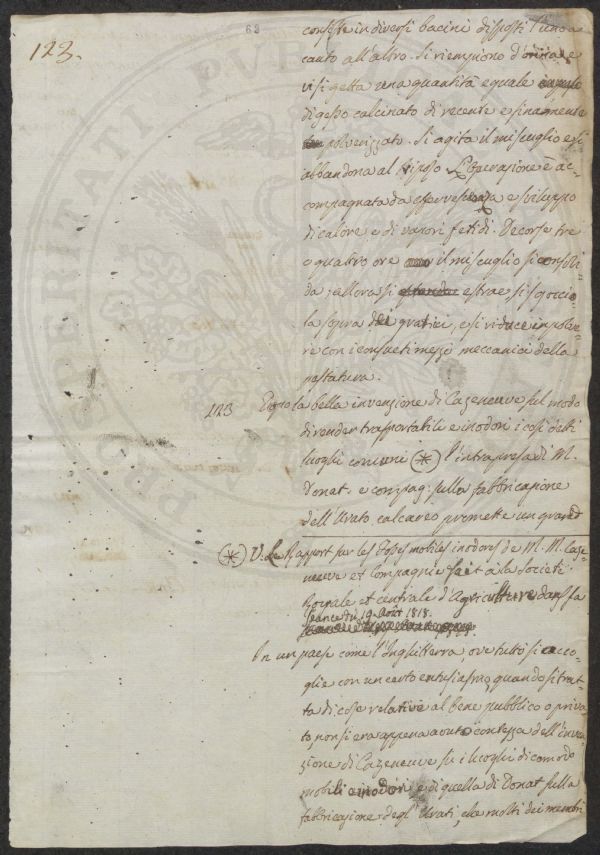 123.
68
consesse in diversi bacini disposti l'uno a
canto all'altro. Si riempiono d'orina, e
vi si getta una quantità eguale
di gesso calcinato di recente e finamente
polverizzato. Si agita il miscuglio e si
abbandona al riposo. L'Operazione è ac-
compagnata da effervescenza e sviluppo
di calore e di vapori fetidi. Decorse tre
o quattro ore il miscuglio si consoli-
da; allora si estrae, si sgoccio
la sopra dei graticci, e si riduce in polve-
re con i consueti mezzi meccanici della
pestatura.
123 Dopo la bella invenzione di Cazeneuve sul modo
di render trasportabili e inodori i così detti
luoghi comuni (*) l'intrapresa di M.
Donat. e compag: sulla fabbricazione
dell'Urato calcareo promette un grand
(*) V. Le Rapport sur les fosses mobiles inodores de M. M. Caze-
neuve et Compagnie fait à la Societé
Royale et centrale d'Agriculture dans la
séance du 19 Août 1818.
In un paese come l'Inghilterra, ove tutto si acco-
glie con un certo entusiasmo, quando si trat-
ta di cose relative al bene pubblico o priva
to, non si era appena avuto contezza dell'inven-
zione di Cazeneuve su i luoghi di comodo
mobili e inodori e di quella di Donat sulla
fabbricazione degl'Urati, che molti dei membri